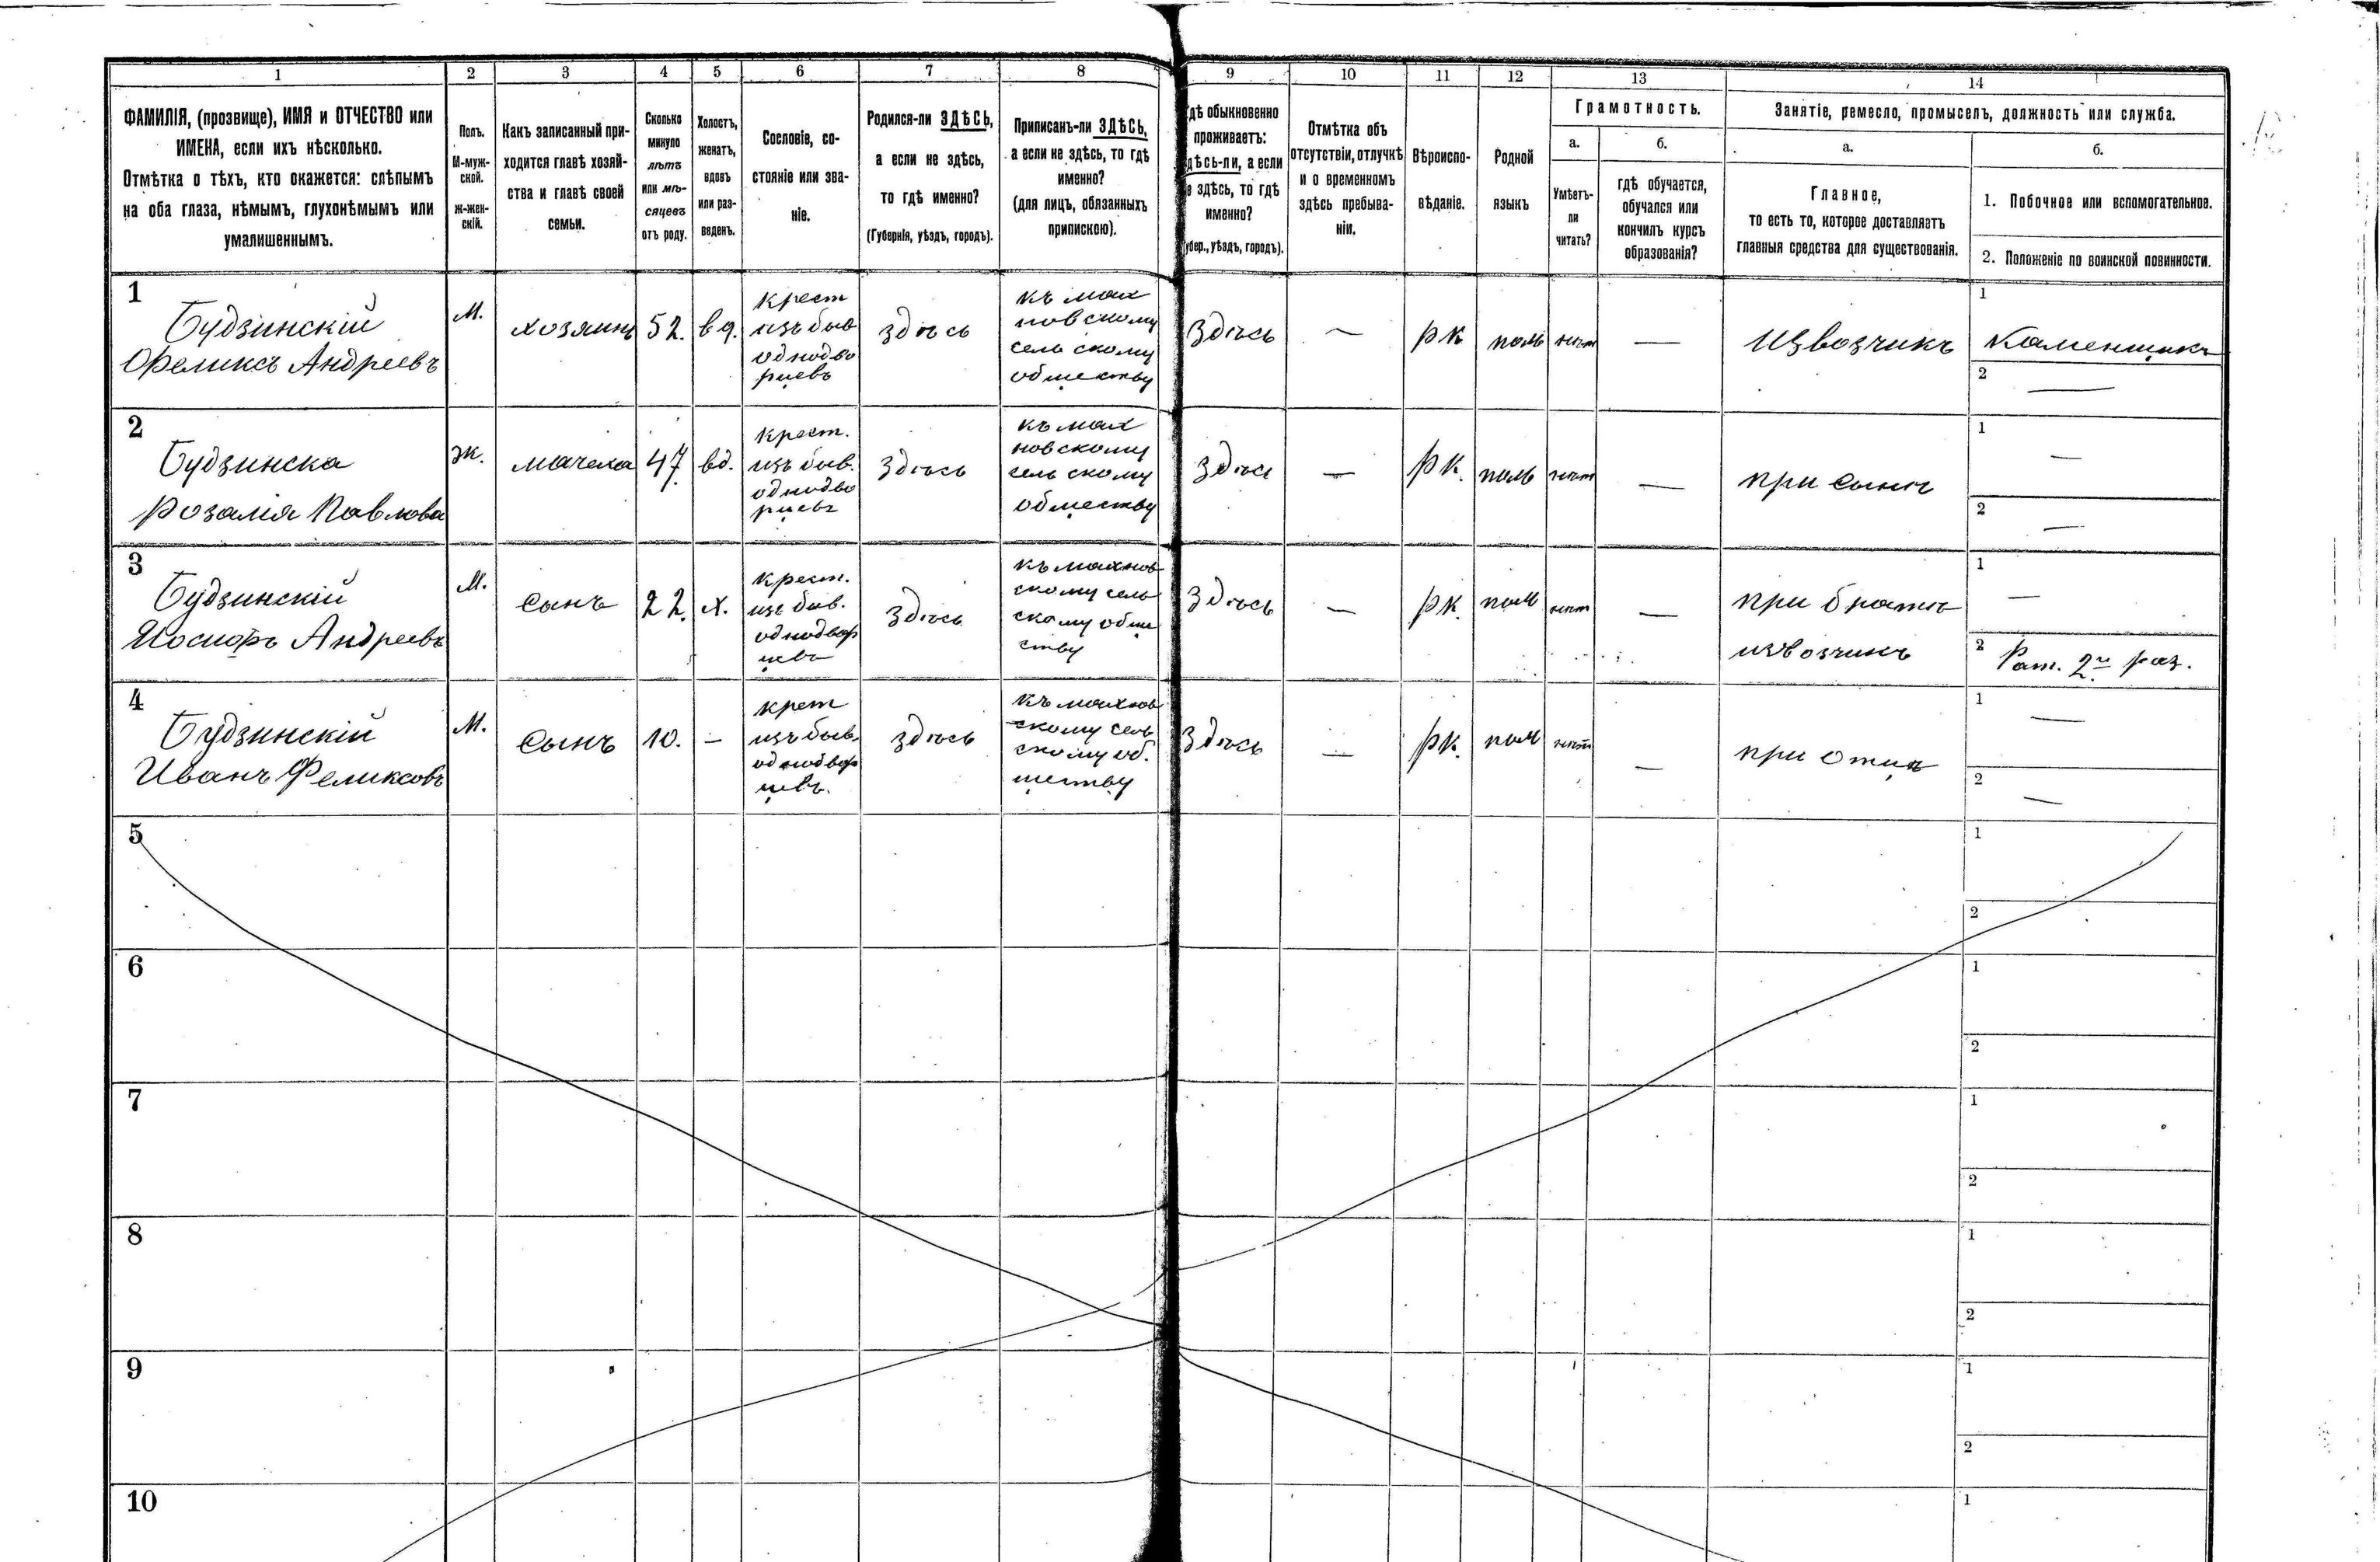 1 2 3 4 5 6 7 8 9 10 11 12 13 14
ФАМИЛІЯ, (прозвище), ИМЯ и ОТЧЕСТВО или
ИМЕНА, если ихъ нѣсколько.
Отмѣтка о тѣхъ, кто окажется: слѣпымъ
на оба глаза, нѣмымъ, глухонѣмымъ или
умалишеннымъ.
Полъ.
М-муж-
ской.
ж-жен-
скій.
Какъ записанный при-
ходится главѣ хозяй-
ства и главѣ своей
семьи.
Сколько
минуло
лѣтъ
или мѣ-
сяцевъ
отъ роду.
Холостъ,
женатъ,
вдовъ
или раз-
веденъ.
Сословіе, со-
стояніе или зва-
ніе.
Родился-ли ЗДѢСЬ,
а если не здѣсь,
то гдѣ именно?
(Губернія, уѣздъ, городъ).
Приписанъ-ли ЗДѢСЬ,
а если не здѣсь, то гдѣ
именно?
(для лицъ, обязанныхъ
припискою).
дѣ обыкновенно
проживаетъ:
дѣсь-ли, а если
е здѣсь, то гдѣ
именно?
убер., уѣздъ, городъ).
Отмѣтка объ
отсутствіи, отлучкѣ
и о временномъ
здѣсь пребыва-
ніи.
Вѣроиспо-
вѣданіе.
Родной
языкъ
Грамотность.
а.
Умѣетъ-
ли
читать?
б.
гдѣ обучается,
обучался или
кончилъ курсъ
образованія?
Занятіе, ремесло, промыселъ, должность или служба.
а.
Главное,
то есть то, которое доставляетъ
главныя средства для существованія.
б.
1. Побочное или вспомогательное.
2. Положеніе по воинской повинности.
1
Будзинскій
Феликсъ Андреевъ
М.
хозяинъ
52.
вд.
крест
изъ быв
однодво
рцевъ
здѣсь
къ мах
новскому
сельскому
обществу
Здѣсь
—
рк
поль
нѣт
—
Извозчикъ
1
Каменщикъ
2
—
2
Будзинска
Розалія Павлова
Ж.
мачеха
47.
вд.
крест.
изъ быв.
однодво
рцевъ
здѣсь
къ мах
новскому
сельскому
обществу
здѣсь
—
рк.
поль
нѣт
—
при сынѣ
1
—
2
—
3
Будзинскій
Иосифъ Андреевъ
М.
Сынъ
22.
х.
крест.
изъ быв.
однодвор
цевъ
здѣсь
къ махнов
скому сель
скому обще
ству
Здѣсь
—
рк.
пол
нѣт
—
при братѣ
извозчикъ
1
—
2
Рат. 2го раз.
4
Будзинскій
Иванъ Феликсовъ
М.
Сынъ
10.
—
крет
изъ быв.
однодвор
цевъ.
здѣсь
къ махнов
скому сель
скому об.
ществу
Здѣсь
—
рк.
пол
нѣт
—
при отцѣ
1
—
2
—
5
1
2
6
1
2
7
1
2
8
1
2
9
1
2
10
1